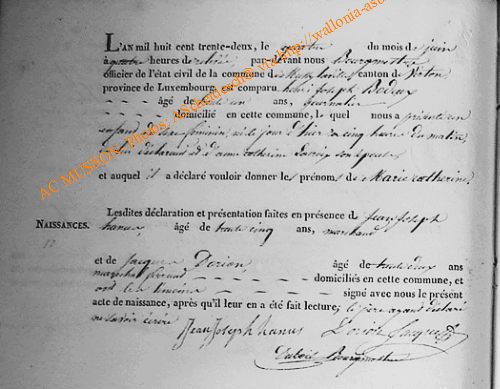 L'AN mil huit cent trente-deux, le quatre du mois de juin
à quatre heures de relevée, par-devant nous Bourgmestre
officier de l'état civil de la commune de canton de Virton
province de Luxembourg, est comparu henri Joseph
âgé de trente un ans, journalier
domicilié en cette commune, le quel nous a présenté un
enfant du sexe féminin, né le jour d'hier a cinq heures du matin,
de lui déclarant et d'anne catherine son épouse
et auquel il a déclaré vouloir donner les prénoms de Marie catherine
Lesdites déclaration et présentation faites en présence de Jean Joseph
NAISSANCES. hanus, âgé de trente cinq ans, marchand
et de Jacques Dorion, âgé de trente deux ans
marechal ferrant domiciliés en cette commune, et
ont les témoins signé avec nous le présent
acte de naissance, après qu'il leur en a été fait lecture; le père ayant déclaré
ne savoir écrire
Jean Joseph hanus Dorion Jacques
Bourgmestre
AC MUSSON Photos: http://wallonia-asbl